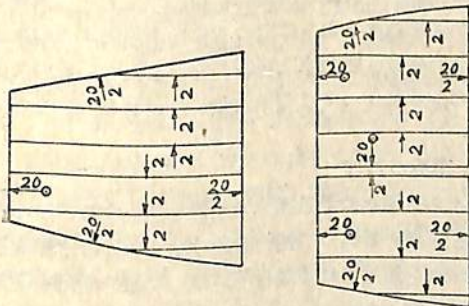 20/2 2
2
2
2
20 2 20/2
20/2 2
20/2 2
20 2 20/2
2
20 2
2
2
20 2 20/2
20/2 2